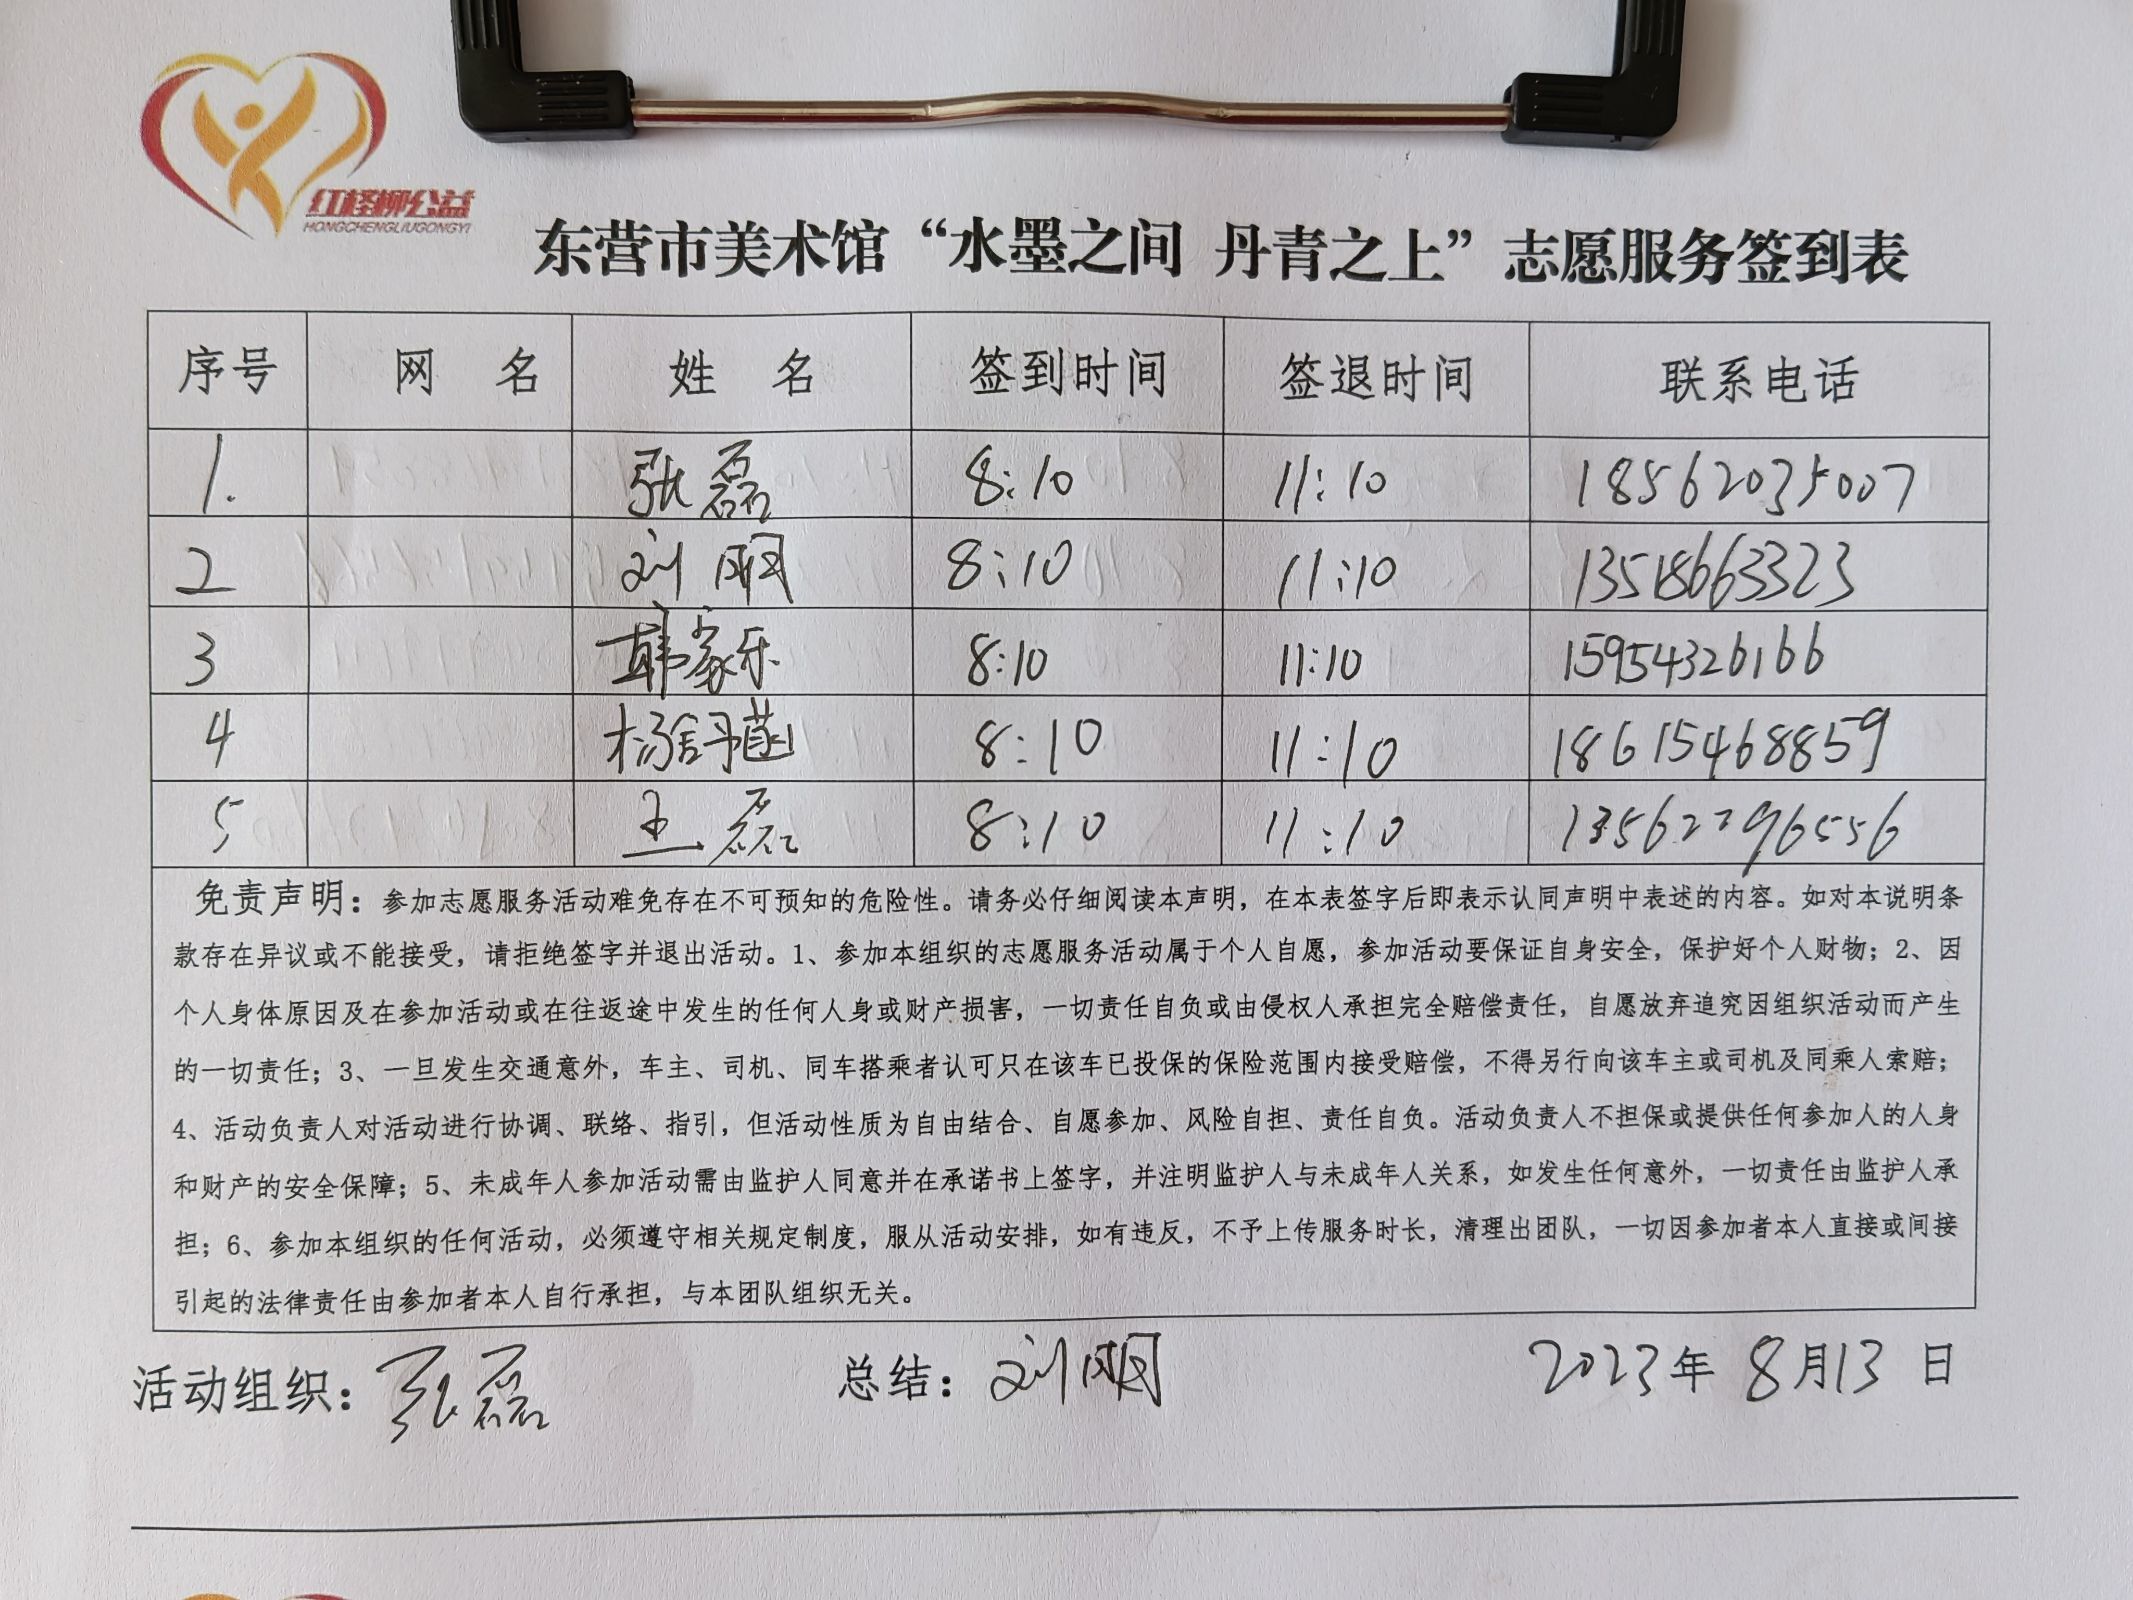 红柽柳公益
HONGCHENGLIUGONGYI
东营市美术馆“水墨之间 丹青之上”志愿服务签到表
序号 网 名 姓 名 签到时间 签退时间 联系电话
1. 张磊 8:10 11:10 18562035007
2 刘明 8:10 11:10 13518663323
3 韩家乐 8:10 11:10 15954326166
4 杨舒丹菡 8:10 11:10 18615468859
5 王磊 8:10 11:10 13562296556
免责声明：参加志愿服务活动难免存在不可预知的危险性。请务必仔细阅读本声明，在本表签字后即表示认同声明中表述的内容。如对本说明条
款存在异议或不能接受，请拒绝签字并退出活动。1、参加本组织的志愿服务活动属于个人自愿，参加活动要保证自身安全，保护好个人财物；2、因
个人身体原因及在参加活动或在往返途中发生的任何人身或财产损害，一切责任自负或由侵权人承担完全赔偿责任，自愿放弃追究因组织活动而产生
的一切责任；3、一旦发生交通意外，车主、司机、同车搭乘者认可只在该车已投保的保险范围内接受赔偿，不得另行向该车主或司机及同乘人索赔；
4、活动负责人对活动进行协调、联络、指引，但活动性质为自由结合、自愿参加、风险自担、责任自负。活动负责人不担保或提供任何参加人的人身
和财产的安全保障；5、未成年人参加活动需由监护人同意并在承诺书上签字，并注明监护人与未成年人关系，如发生任何意外，一切责任由监护人承
担；6、参加本组织的任何活动，必须遵守相关规定制度，服从活动安排，如有违反，不予上传服务时长，清理出团队，一切因参加者本人直接或间接
引起的法律责任由参加者本人自行承担，与本团队组织无关。
活动组织：张磊 总结：刘明 2023年 8月13 日